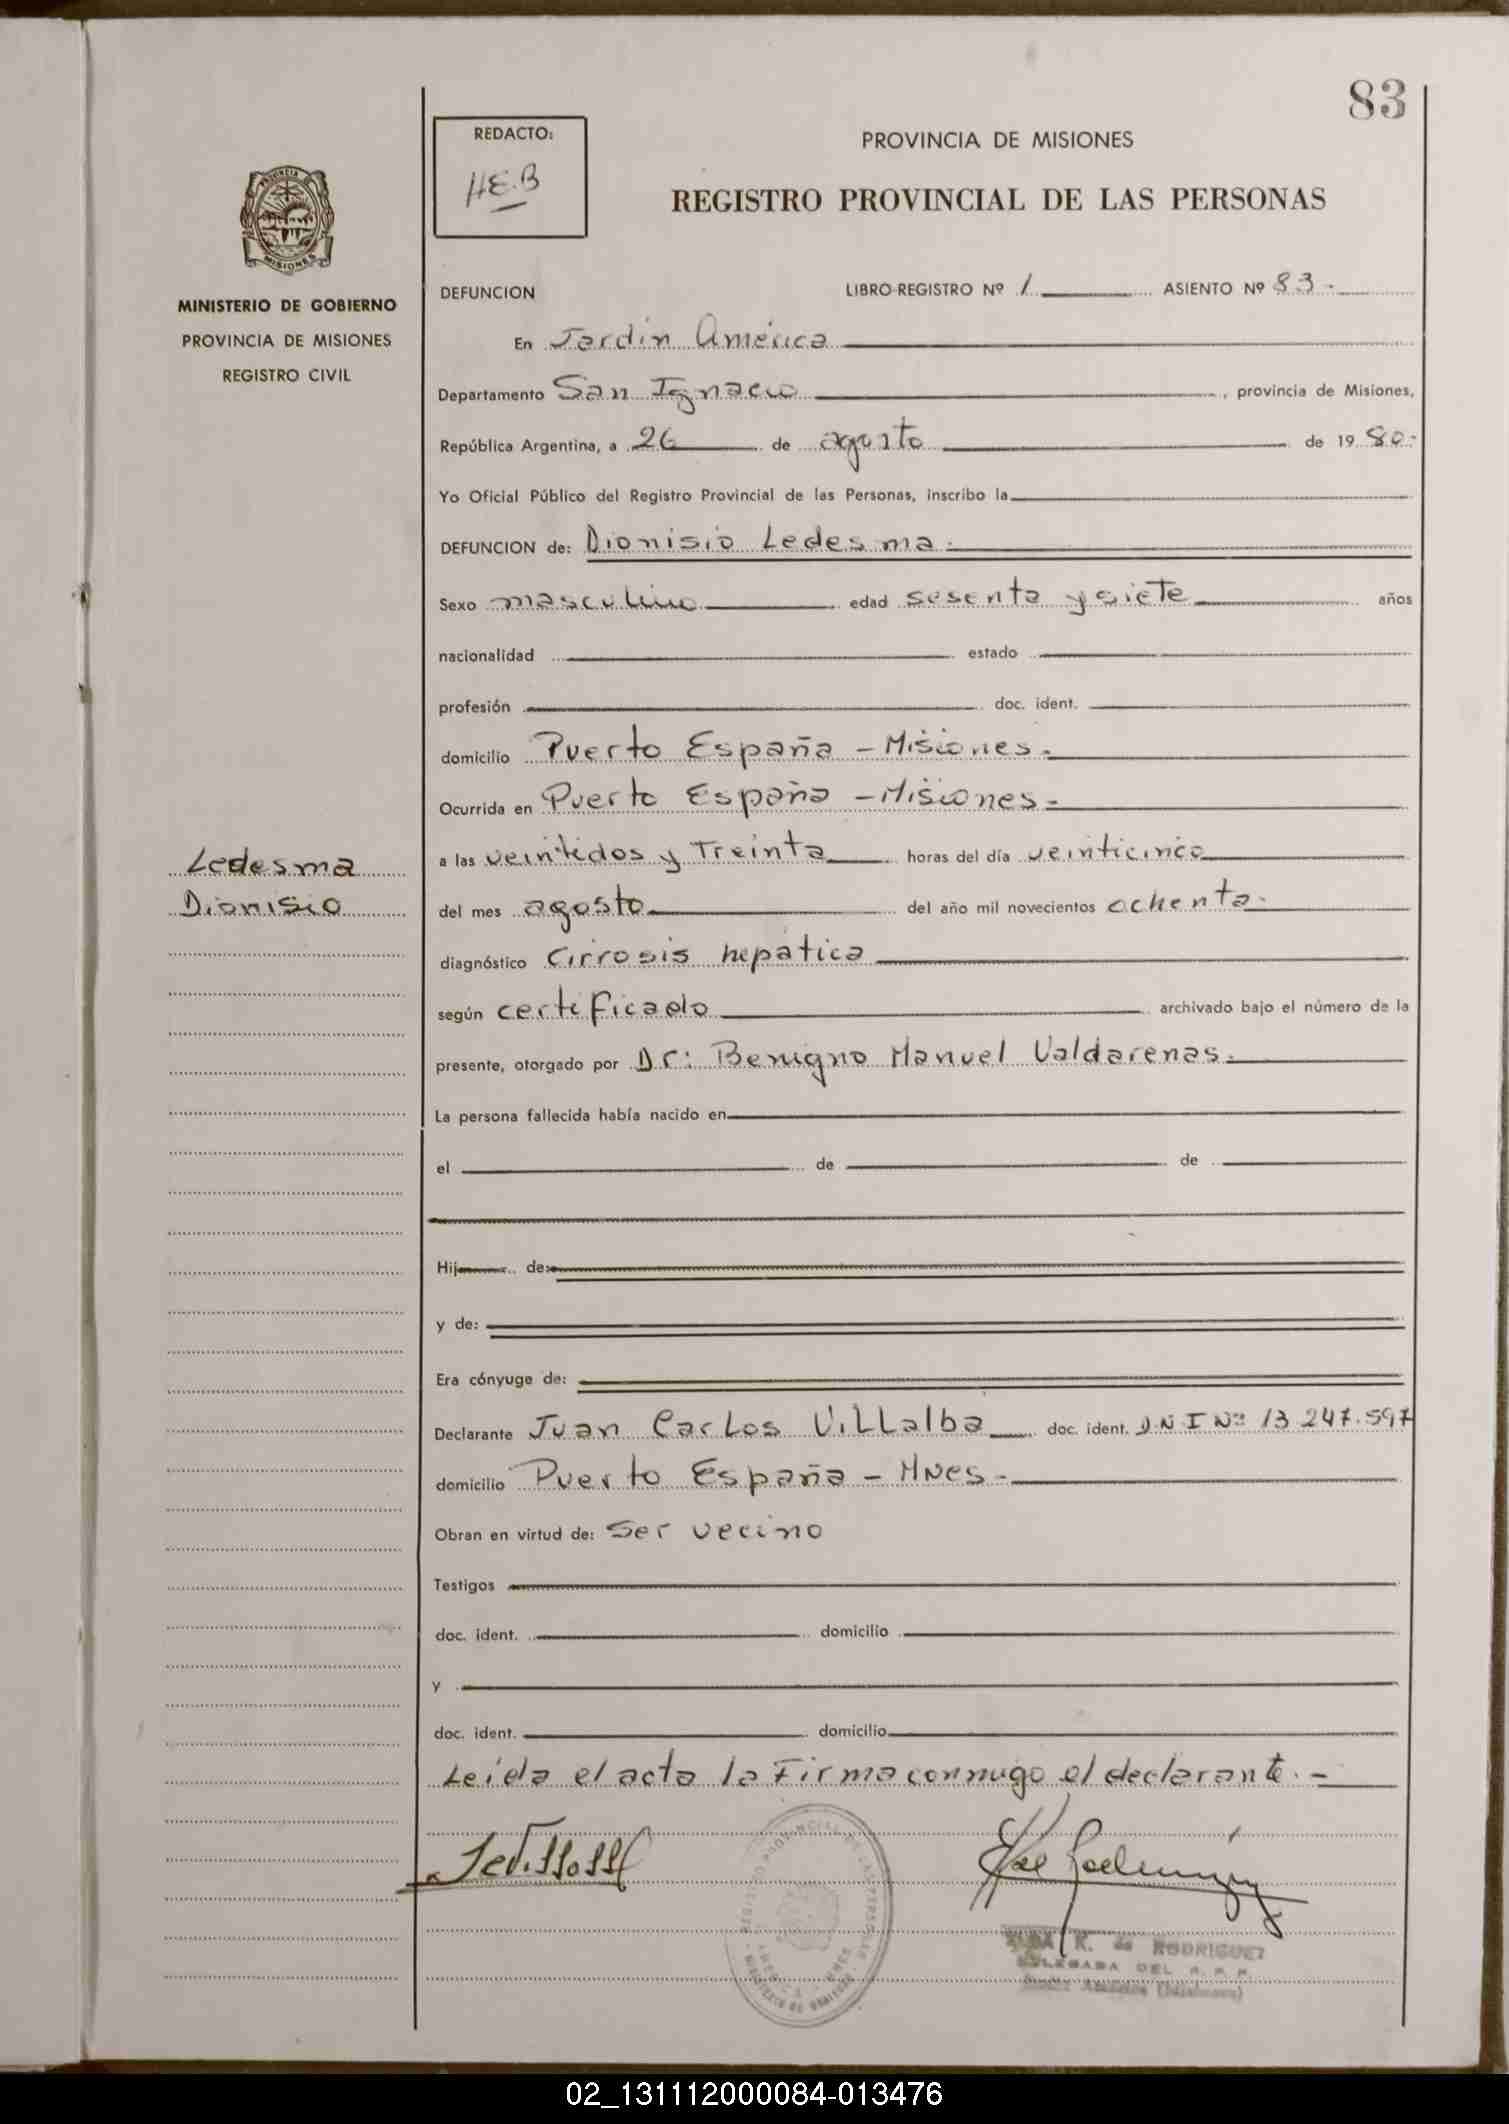 83
REDACTO:
HE.B
PROVINCIA DE MISIONES
REGISTRO PROVINCIAL DE LAS PERSONAS
PROVINCIA DE
MISIONES
MINISTERIO DE GOBIERNO
PROVINCIA DE MISIONES
REGISTRO CIVIL
DEFUNCION LIBRO-REGISTRO Nº 1 ASIENTO Nº 83-
En Jardin América
Departamento San Ignacio, provincia de Misiones,
República Argentina, a 26 de agosto de 19 80-
Yo Oficial Público del Registro Provincial de las Personas, inscribo la
DEFUNCION de: Dionisio Ledesma.
Sexo masculino edad sesenta y siete años
nacionalidad estado
profesión doc. ident.
domicilio Puerto España - Misiones.
Ocurrida en Puerto España - Misiones-
a las veintidos y Treinta horas del día veinticinco
del mes agosto del año mil novecientos ochenta.
diagnóstico Cirrosis hepatica
según certificado archivado bajo el número de la
presente, otorgado por Dr: Benigno Manuel Valdarenas.
La persona fallecida había nacido en
el de de
Hij de:
y de:
Era cónyuge de:
Declarante Juan Carlos Villalba doc. ident. D.N I Nº 13 247.597
domicilio Puerto España - Mnes-
Obran en virtud de: Ser vecino
Testigos
doc. ident. domicilio
y
doc. ident. domicilio
Leida el acta la Firma conmigo el declarante.-
Ledesma
Dionisio
REGISTRO PROVINCIAL DE LAS PERSONAS
K. de RODRIGUEZ
DELEGADA DEL R. P. P.
02_131112000084-013476